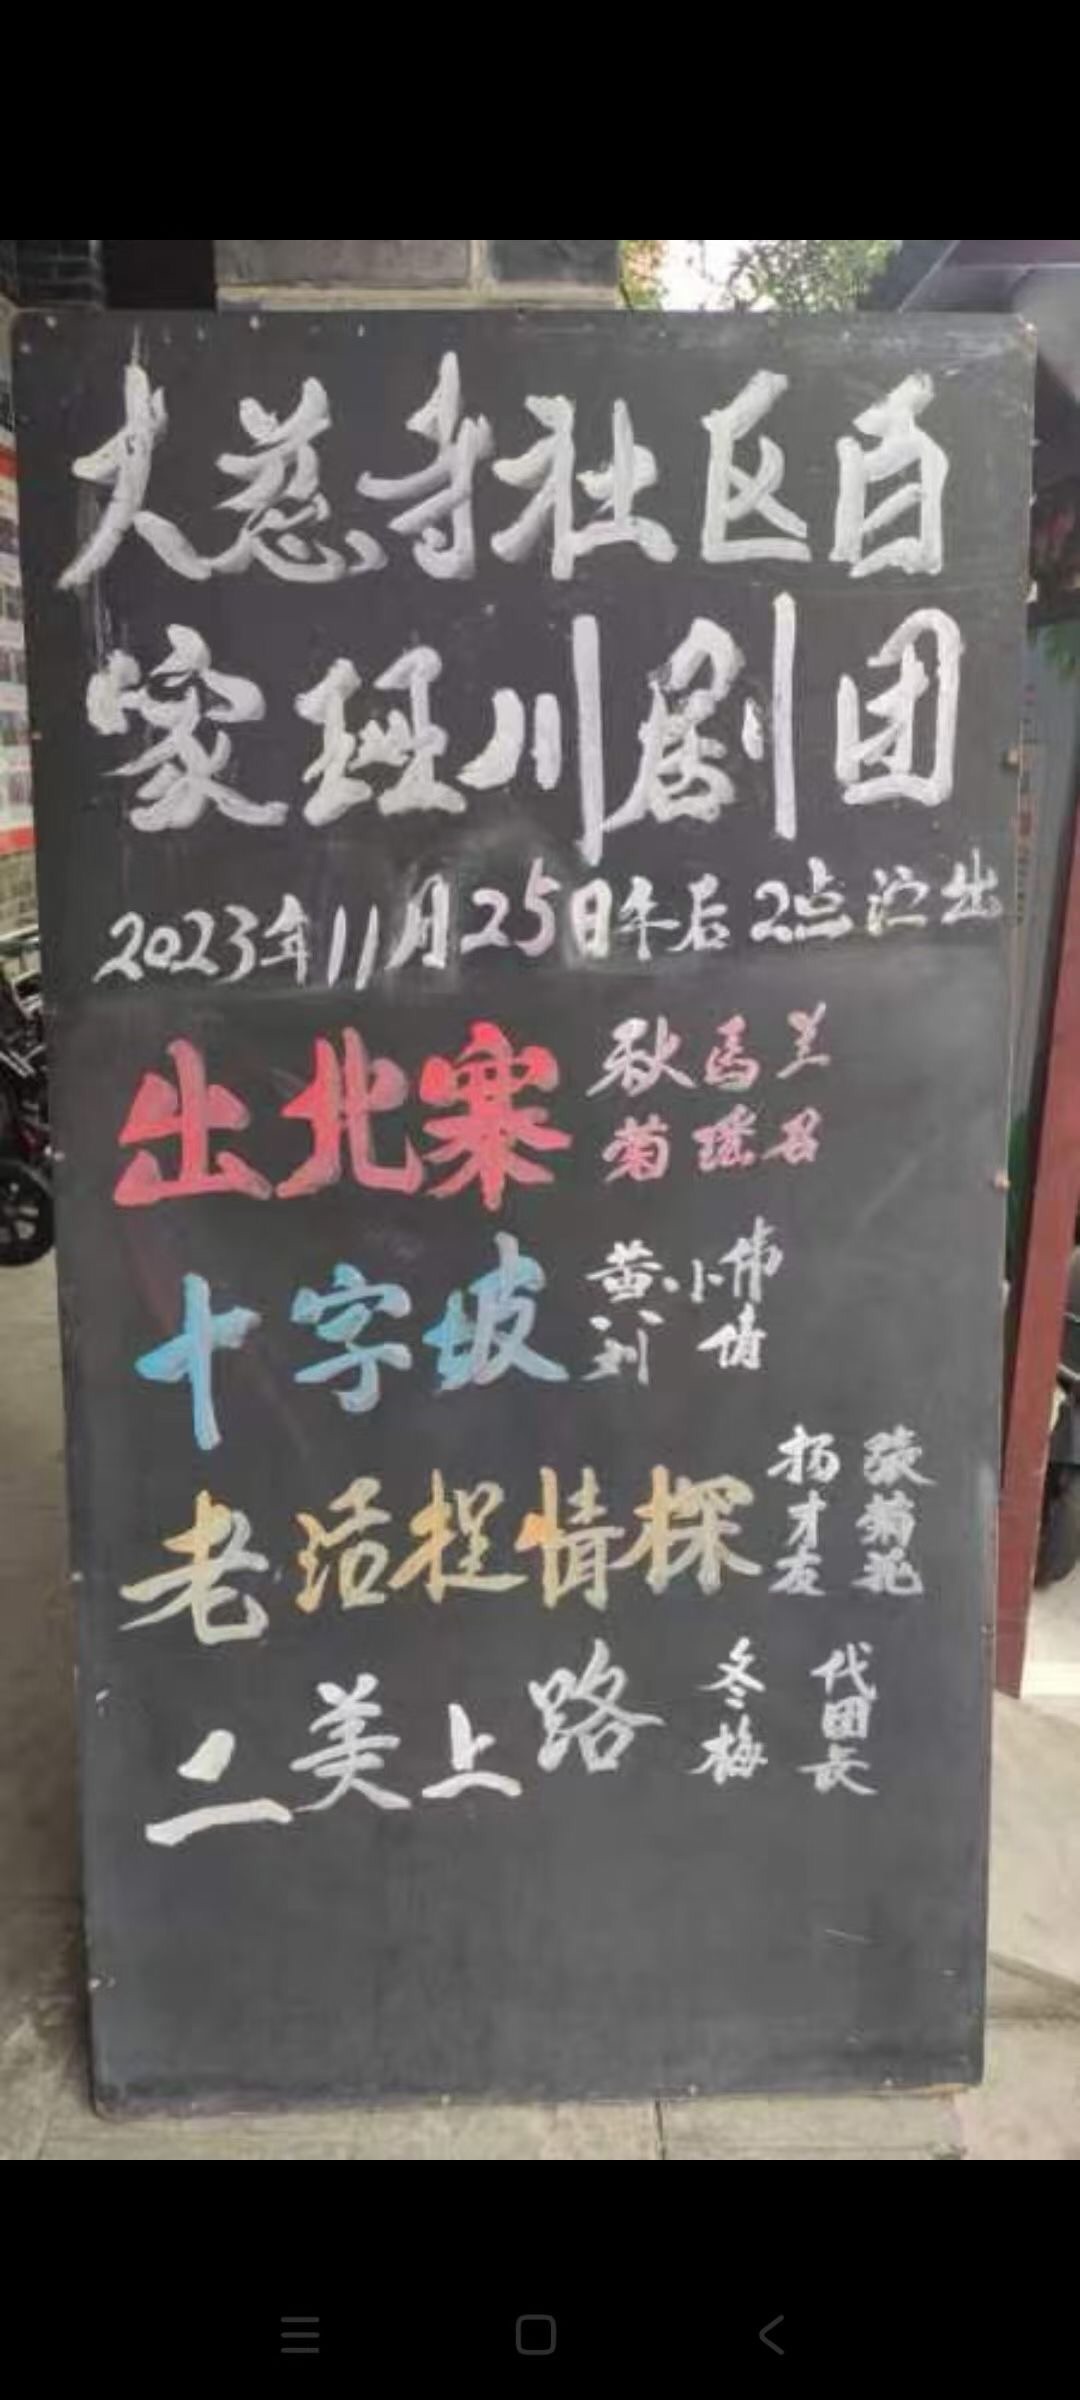 大慈寺社区百
家班川剧团
2023年11月25日午后2点演出
出北寨 秋菊 马瑶 兰君
十字坡 黄小伟 刘倩
老活捉情探 杨才友 张菊花
二美上路 冬梅 代团长